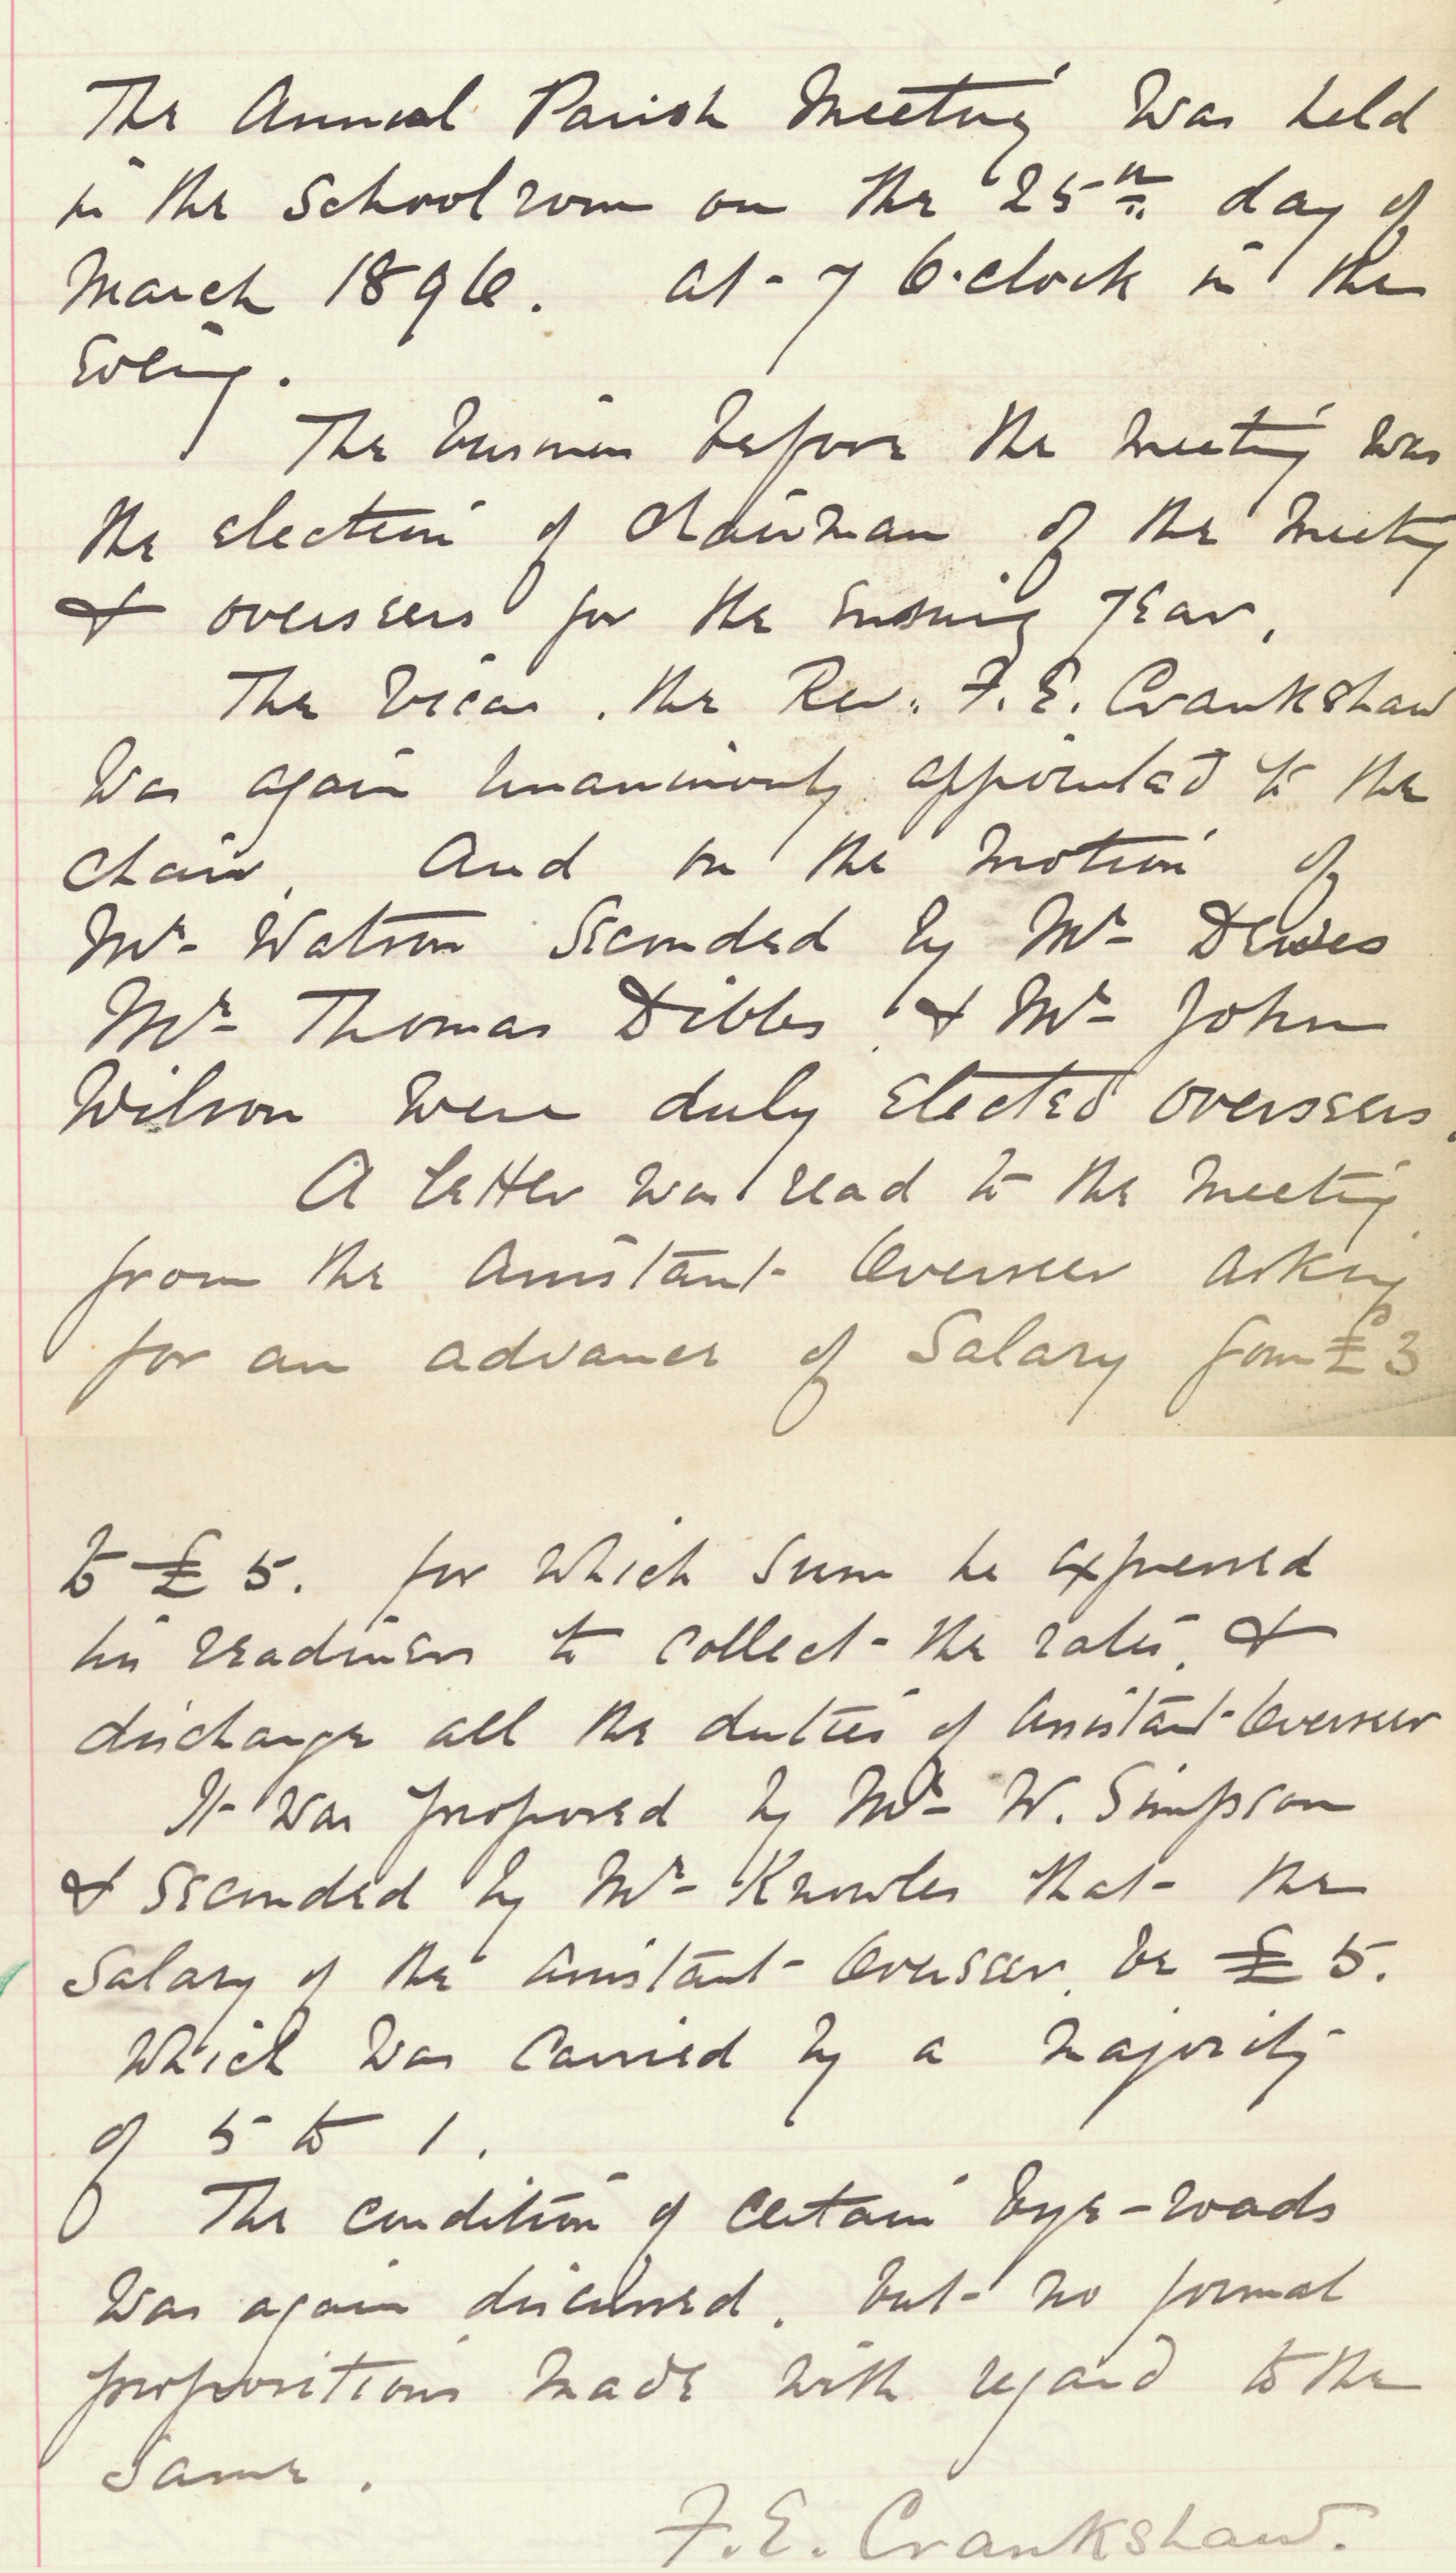 The Annual Parish Meeting was held
in the Schoolroom on the 25th day of
March 1896. at 7 O'clock in the
Eveing.
The business before the meeting was
the election of Chairman of the meeting
& overseers for the ensuing year,
The Vicar, the Rev. F. E. Crankshaw
was again unanimously appointed to the
chair, And on the motion of
Mr Watson Seconded by Mr Dewes
Mr Thomas Dibbs, & Mr John
Wilson were duly Elected overseers.
A letter was read to the meeting
from the Assistant Overseer asking
for an advance of Salary from £3
to £5. for which sum he expressed
his readiness to collect the rates, &
discharge all the duties of Assistant Overseer
It was proposed by Mr W. Simpson
& seconded by Mr Knowles that the
Salary of the Assistant Overseer, be £5.
Which was Carried by a majority
of 5 to 1.
The condition of certain bye-roads
was again discussed, but no formal
propositions made with regard to the
same.
F. E. Crankshaw.